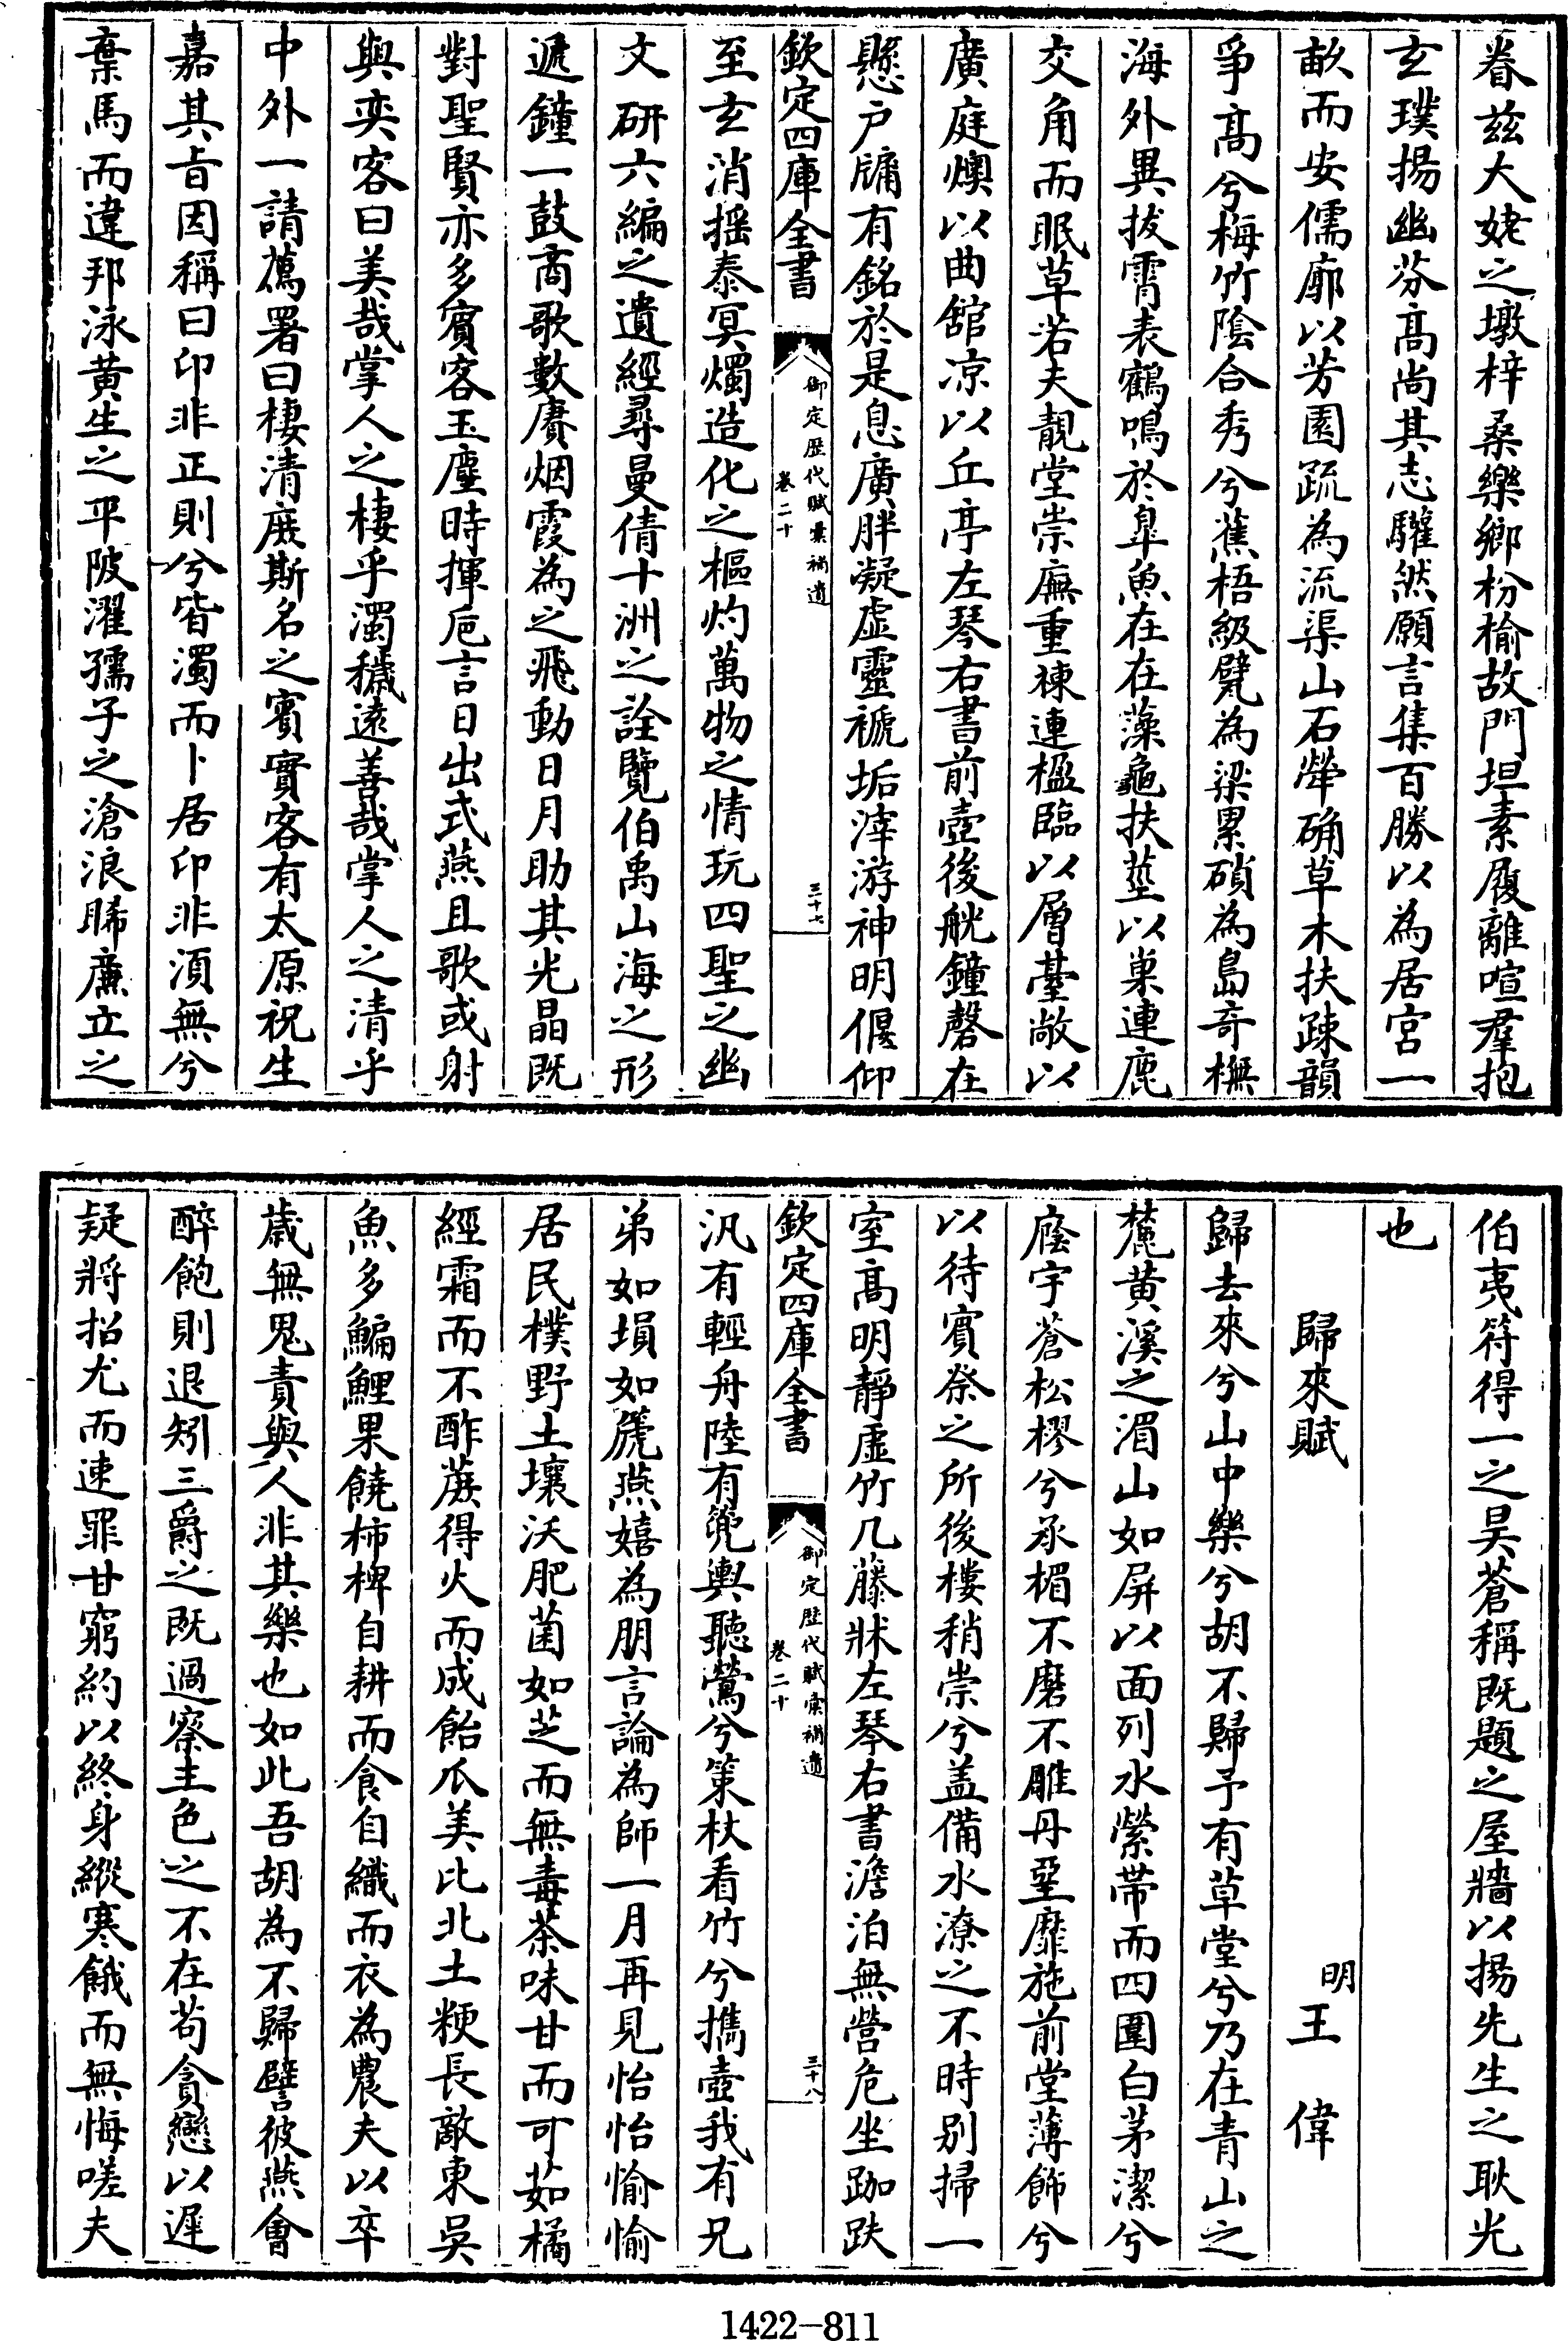 眷兹大姥之墩梓桑樂鄉枌榆故門坦素履離喧羣抱
玄璞揚幽芬髙尚其志驩然願言集百勝以為居宫一
畝而安儒廓以芳園疏為流渠山石犖确草木扶疎韻
爭髙兮梅竹隂合秀兮蕉梧級甓為梁累磧為島奇橅
海外異拔霄表鶴鳴於臯魚在在藻龜扶莖以巢連鹿
交角而眠草若夫靚堂崇廡重棟連楹臨以層臺敞以
廣庭燠以曲舘凉以丘亭左琴右書前壺後觥鐘磬在
懸户牖有銘於是息廣胖凝虛靈褫垢滓游神明偃仰
欽定四庫全書
御定歴代賦彙補遺
卷二十
三十七
至玄消摇泰冥燭造化之樞灼萬物之情玩四聖之幽
文研六編之遺經尋曼倩十洲之詮覽伯禹山海之形
遞鐘一鼓商歌數賡烟霞為之飛動日月助其光晶既
對聖賢亦多賓客玉麈時揮巵言日出式燕且歌或射
與奕客曰美哉掌人之棲乎濁穢逺善哉掌人之清乎
中外一請薦署曰棲清厎斯名之賓實客有太原祝生
嘉其㫖因稱曰卬非正則兮皆濁而卜居卬非湏無兮
棄馬而違邦泳黄生之平陂濯孺子之滄浪睎亷立之
伯夷符得一之昊蒼稱既題之屋牆以揚先生之耿光
也
歸來賦
明
王偉
歸去來兮山中樂兮胡不歸予有草堂兮乃在青山之
麓黄溪之湄山如屏以面列水縈帶而四圍白茅潔兮
廕宇蒼松樛兮承楣不磨不雕丹堊靡施前堂薄飾兮
以待賓祭之所後樓稍崇兮盖備水潦之不時别掃一
室髙明靜虛竹几藤牀左琴右書澹泊無營危坐跏趺
欽定四庫全書
御定歴代賦彙補遺
卷二十
三十八
汎有輕舟陸有篼輿聽鶯兮策杖看竹兮攜壺我有兄
弟如塤如篪燕嬉為朋言論為師一月再見怡怡愉愉
居民樸野土壤沃肥菌如芝而無毒茶味甘而可茹橘
經霜而不酢蔗得火而成飴爪美比北土粳長敵東吳
魚多鯿鯉果饒柿椑自耕而食自織而衣為農夫以卒
歲無鬼責與人非其樂也如此吾胡為不歸譬彼燕㑹
醉飽則退矧三爵之既過察主色之不在苟貪戀以遲
疑將招尤而速罪甘窮約以終身縱寒餓而無悔嗟夫
1422-811